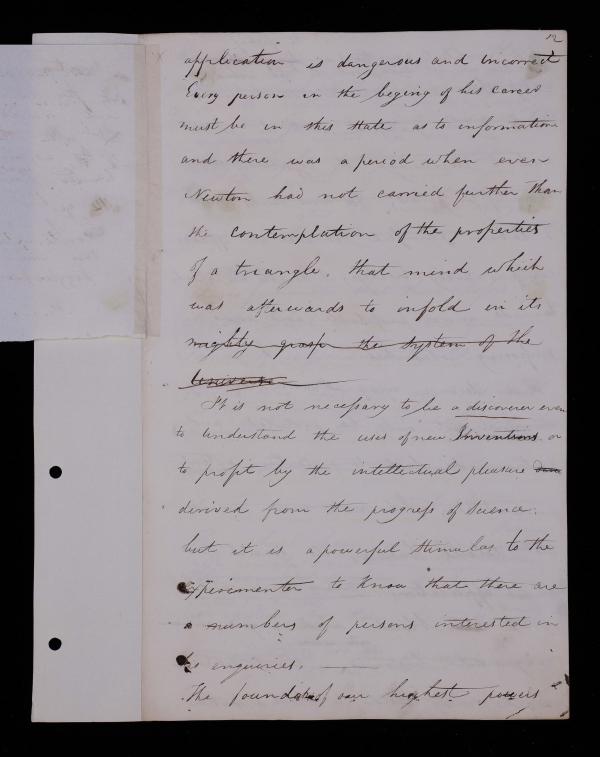 12
application is dangerous and incorrect
Every person in the begining of his career
must be in this state as to information
and there was a period when even
Newton had not carried further than
the contemplation of the properties
of a triangle. that mind which
was afterwards to infold in its
mighty grasp the system of the
Universe
It is not necessary to be a discoverer even
to understand the uses of new Inventions or
to profit by the intellectual pleasure
derived from the progress of Science.
but it is a powerful stimulus to the
experimenter to know that there are
a numbers of persons interested in
his enquiries.
The foundations of our highest powers